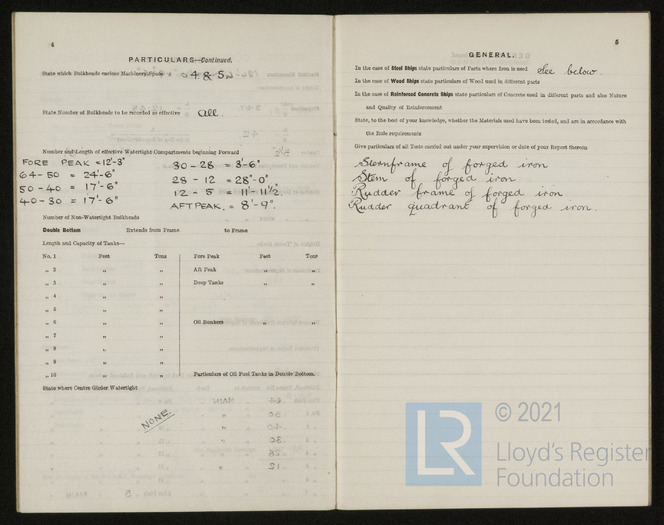 4
PARTICULARS—Continued.
State which Bulkheads enclose Machinery Space 4 & 5
State Number of Bulkheads to be recorded as effective all.
Number and Length of effective Watertight Compartments beginning Forward
FORE PEAK = 12'-3"
64-50 = 24'-6"
50-40 = 17'-6"
40-30 = 17'-6"
30-28 = 3'-6"
28-12 = 28"-0"
12-5 = 11'-11½"
AFT PEAK. = 8'-9".
Number of Non-Watertight Bulkheads
Double Bottom Extends from Frame to Frame
Length and Capacity of Tanks—
No. 1 Feet Tons Fore Peak Feet Tons
„ 2 „ „ Aft Peak „ „
„ 3 „ „ Deep Tanks „ „
„ 4 „ „
„ 5 „ „
„ 6 „ „ Oil Bunkers „ „
„ 7 „ „
„ 8 „ „
„ 9 „ „
„ 10 „ „ Particulars of Oil Fuel Tanks in Double Bottom.
State where Centre Girder Watertight
NONE.
5
GENERAL.
In the case of Steel Ships state particulars of Parts where Iron is used See below.
In the case of Wood Ships state particulars of Wood used in different parts
In the case of Reinforced Concrete Ships state particulars of Concrete used in different parts and also Nature
and Quality of Reinforcement
State, to the best of your knowledge, whether the Materials used have been tested, and are in accordance with
the Rule requirements
Give particulars of all Tests carried out under your supervision or date of your Report thereon
Sternframe of forged iron
Stem of forged iron
Rudder frame of forged iron
Rudder quadrant of forged iron.
LR © 2021
Lloyd's Register
Foundation